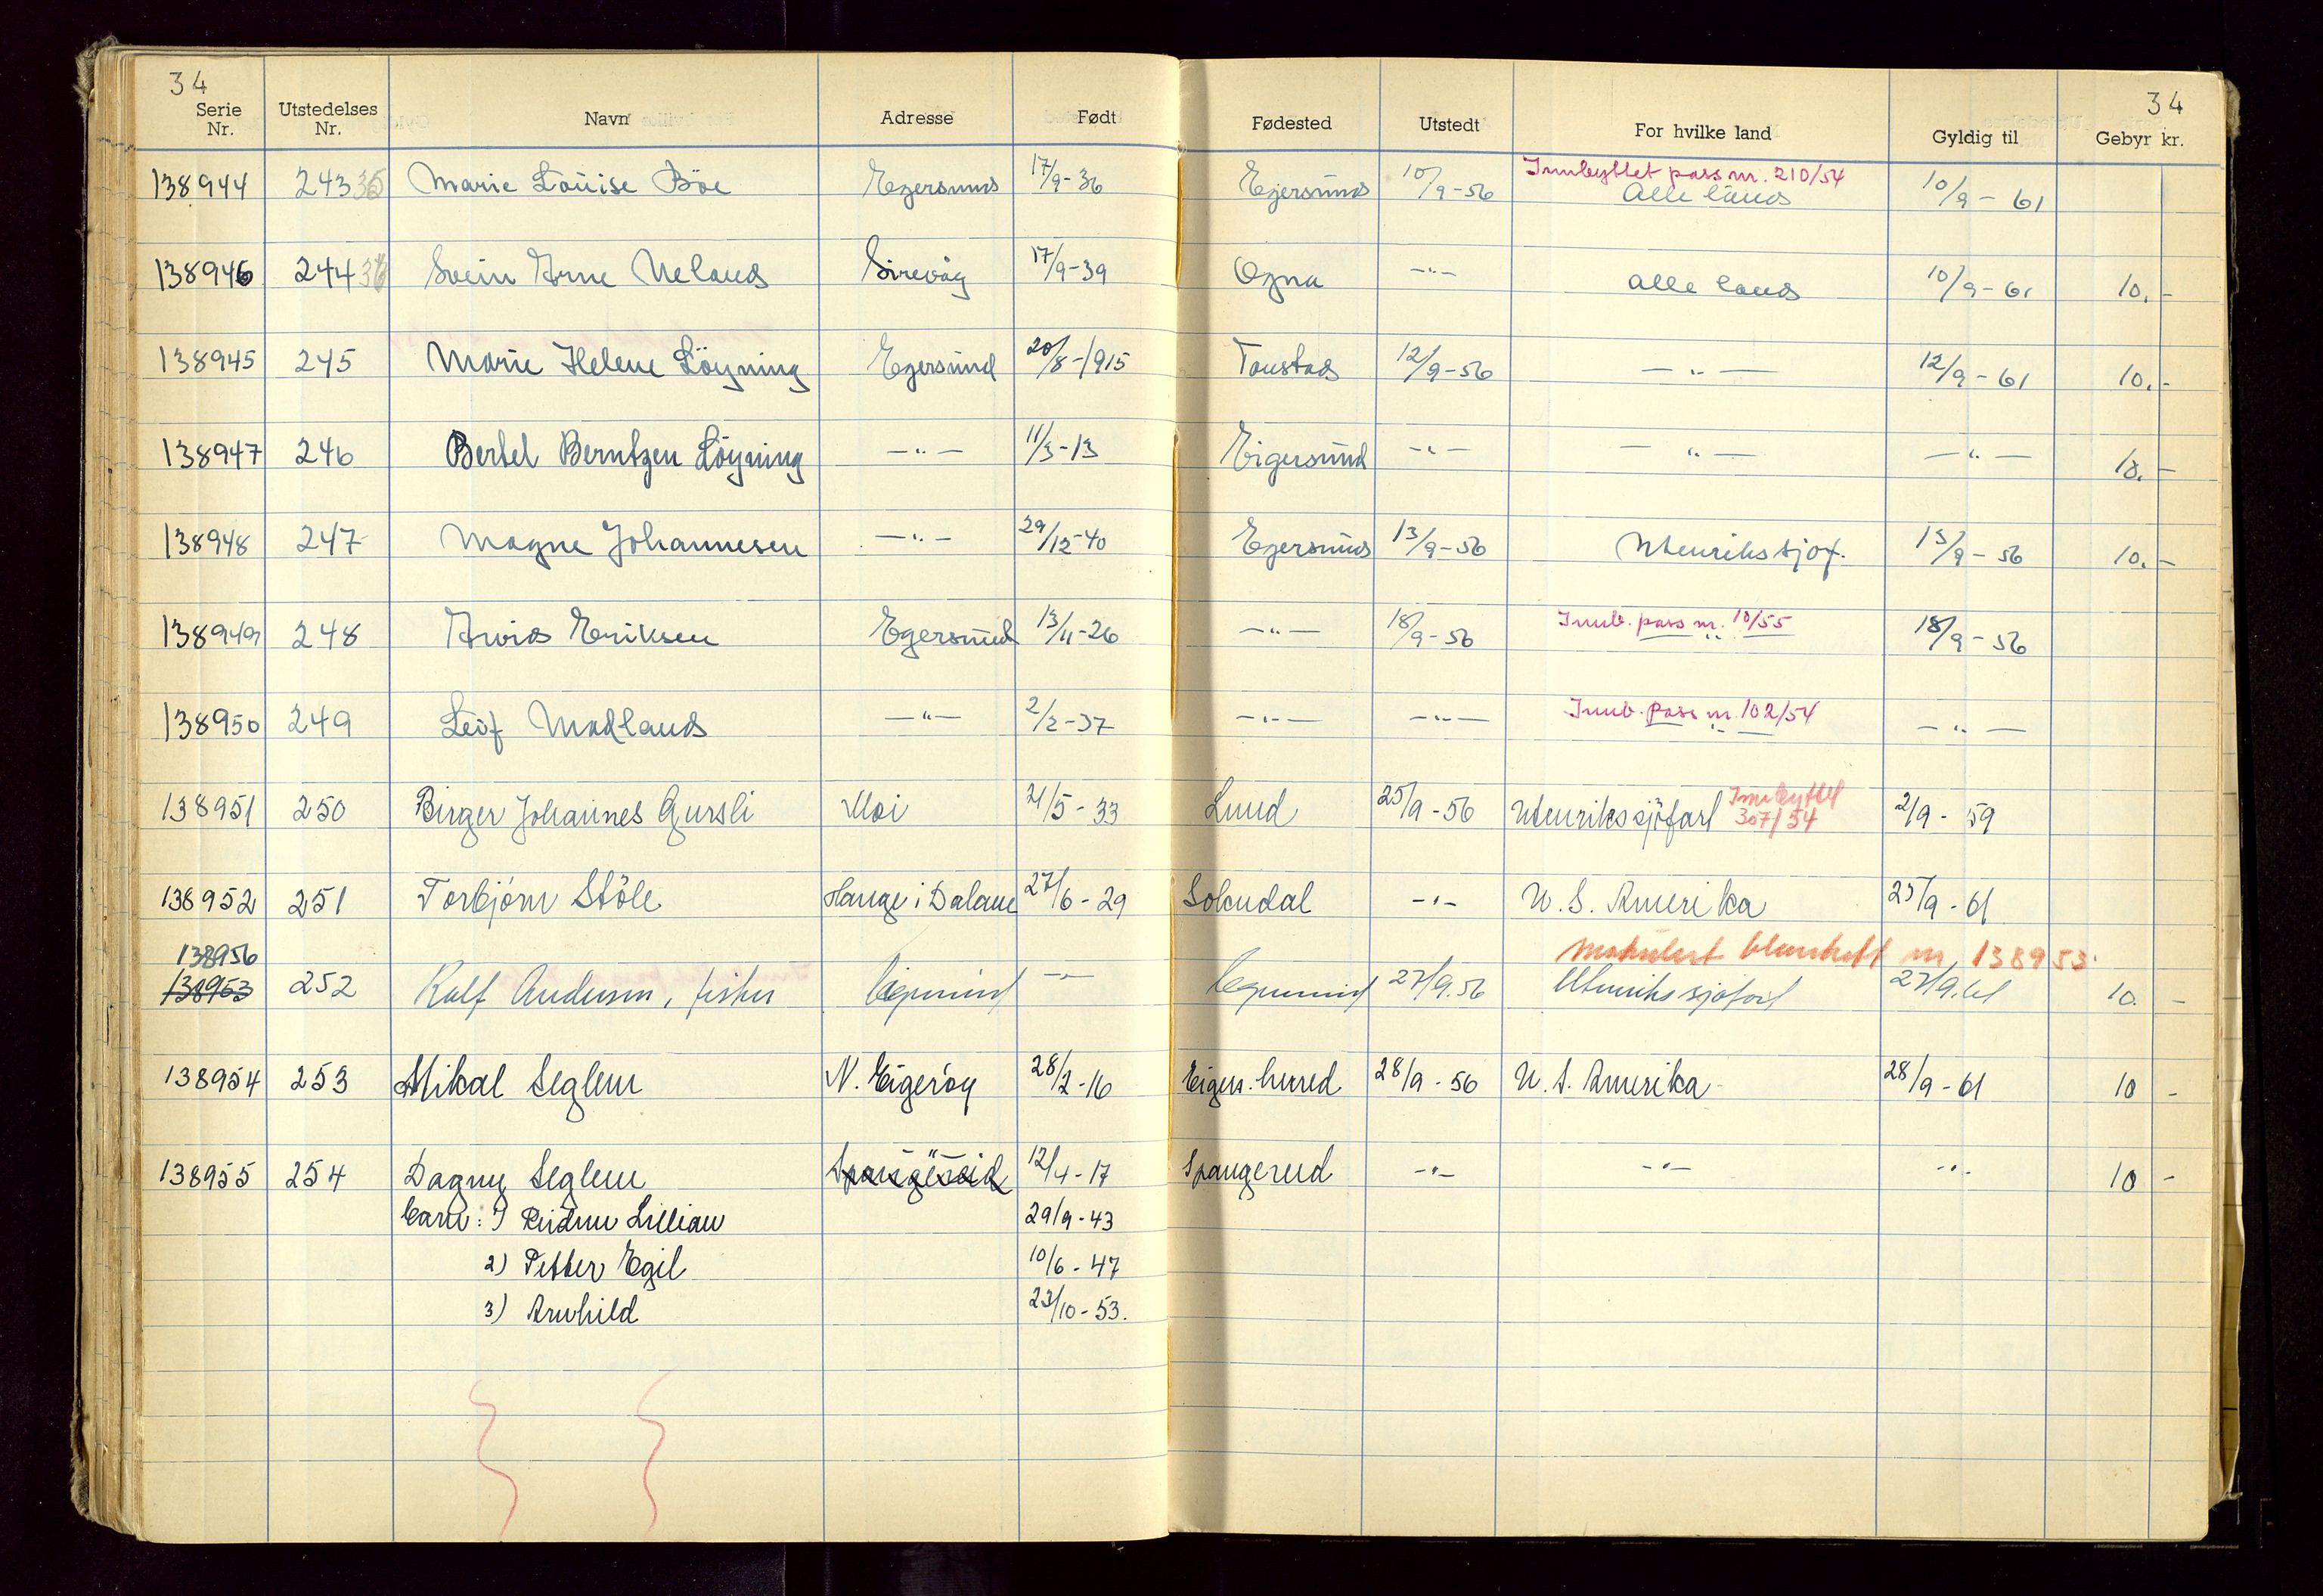 34
34
Serie Nr. Utstedelses Nr. Navn Adresse Født Fødested Utstedt For hvilke land Gyldig til Gebyr kr.
Innbyttet pass nr. 210/54
138944 243 35 Marie Louise Böe Egersund 17/9-36 Egersund 10/9-56 Alle land 10/9-61
138946 244 36 Svein Arne Ueland Sirevåg 17/9-39 Ogna -"- alle land 10/9-61 10.-
138945 245 Marie Helene Löyning Egersund 20/8-1915 Tonstad 12/9-56 -"- 12/9-61 10.-
138947 246 Bertel Berntzen Löyning -"- 11/3-13 Eigersund -"- -"- -"- 10.-
138948 247 Magne Johannesen -"- 29/12-40 Egersund 13/9-56 Utenrikssjøf. 13/9-56 10.-
Innb. pass nr. 10/55
138949 248 Arvid Eriksen Egersund 13/11-26 -"- 18/9-56 -"- 18/9-56
Innb. pass nr. 102/54
138950 249 Leif Madland -"- 2/2-37 -"- -"- -"- -"-
138951 250 Birger Johannes Gursli Moi 21/5-33 Lund 25/9-56 Utenrikssjöfart Innbyttet 307/54 2/9-59
138952 251 Torbjörn Stöle Hauge i Dalane 27/6-29 Sokndal -"- U.S. Amerika 25/9-61
138956 Makulert blankett nr 138953.
138953 252 Rolf Andersen, fisker Egersund -"- Egersund 27/9.56 Utenrikssjøfart 27/9.61 10. -
138954 253 Mikal Seglem N. Eigeröy 28/2-16 Eigers. herred 28/9-56 U.S. Amerika 28/9-61 10 -
138955 254 Dagny Seglem -"- Spangereid 12/4-17 Spangereid -"- -"- -"- 10 -
Barn: 1) Reidun Lillian 29/9-43
2) Petter Egil 10/6-47
3) Arnhild 23/10-53.